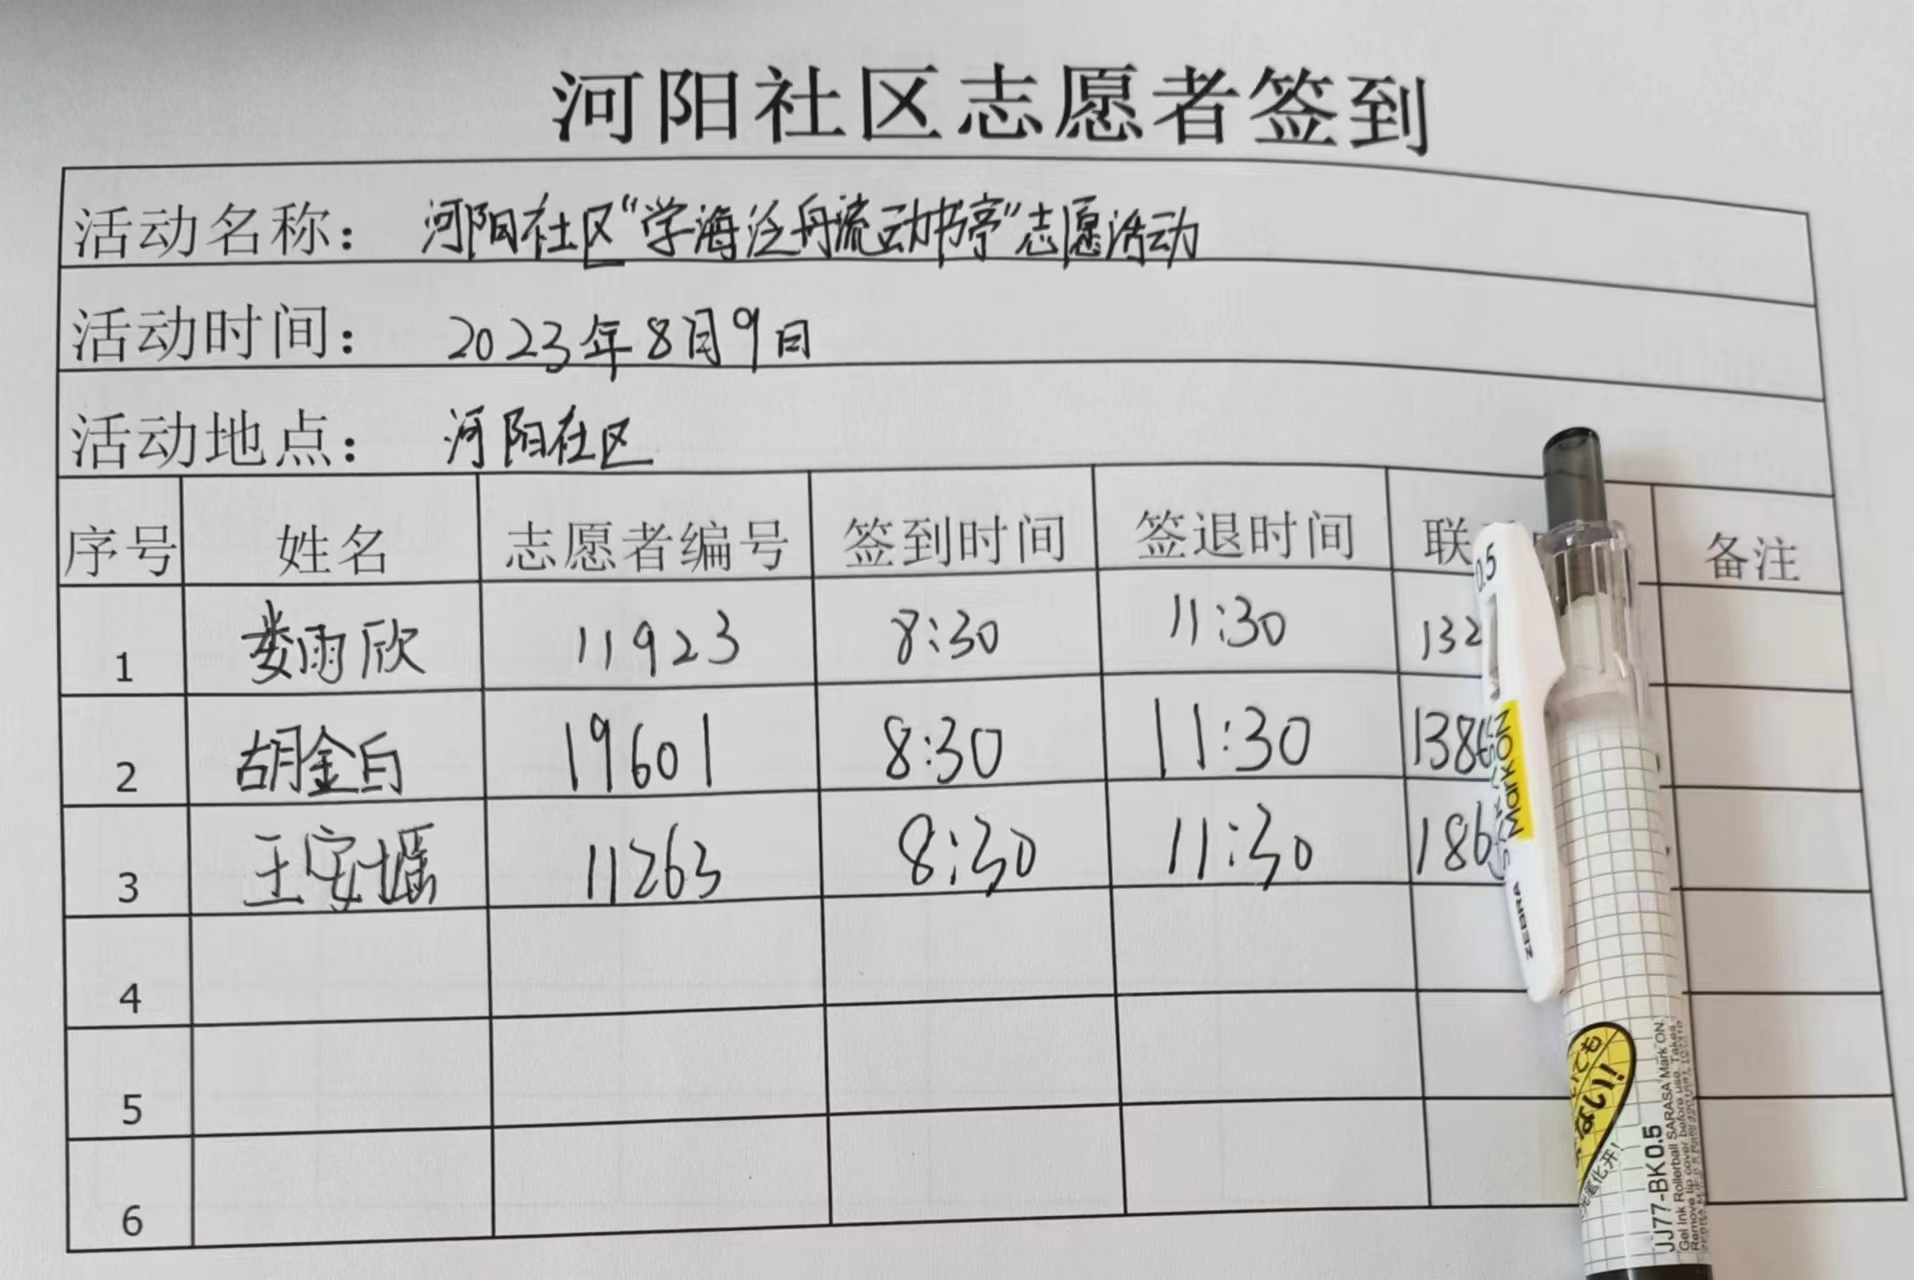 河阳社区志愿者签到
活动名称： 河阳社区“学海泛舟流动书亭”志愿活动
活动时间： 2023年8月9日
活动地点： 河阳社区
序号 姓名 志愿者编号 签到时间 签退时间 联 备注
1 娄雨欣 11923 8:30 11:30 132
2 胡金白 19601 8:30 11:30 138
3 王安 11263 8:30 11:30 186
4
5
6
0.5
Mark ON
ZEBRA
JJ77-BK0.5
Gel Ink Rollerball SARASA Mark ON.